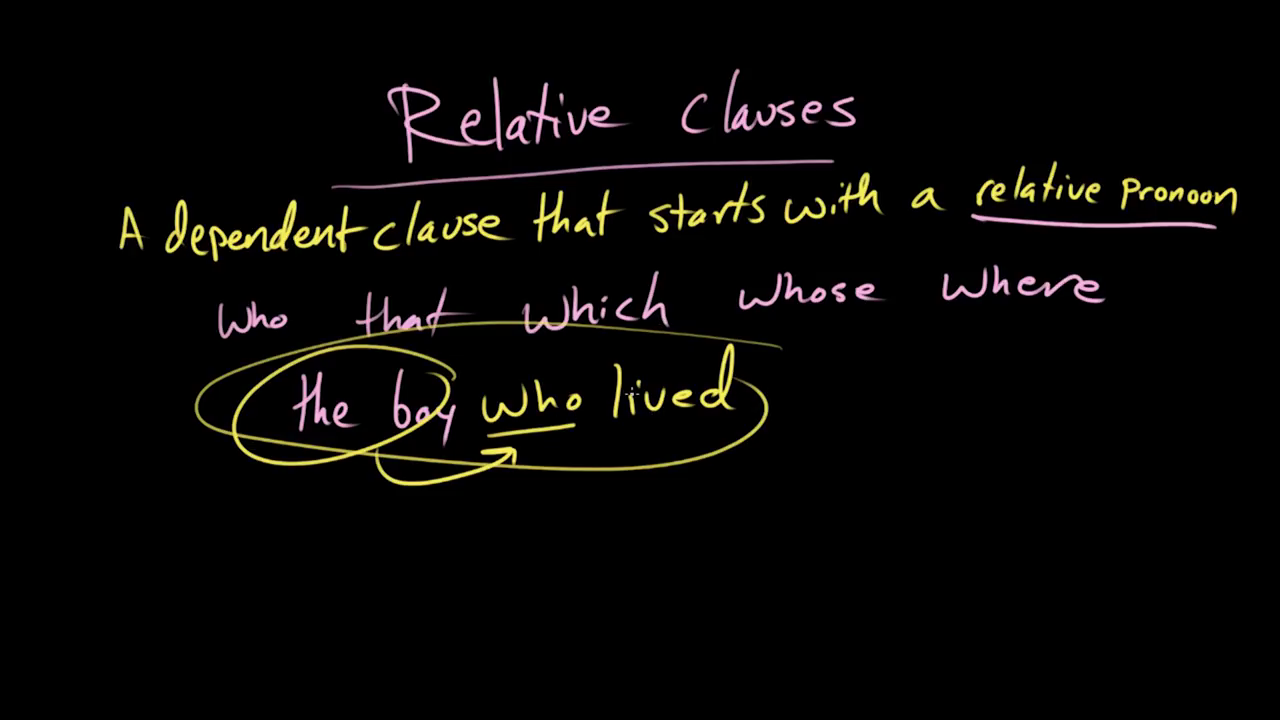 Relative clauses
A dependent clause that starts with a relative pronoun
who that which whose where
the boy who lived